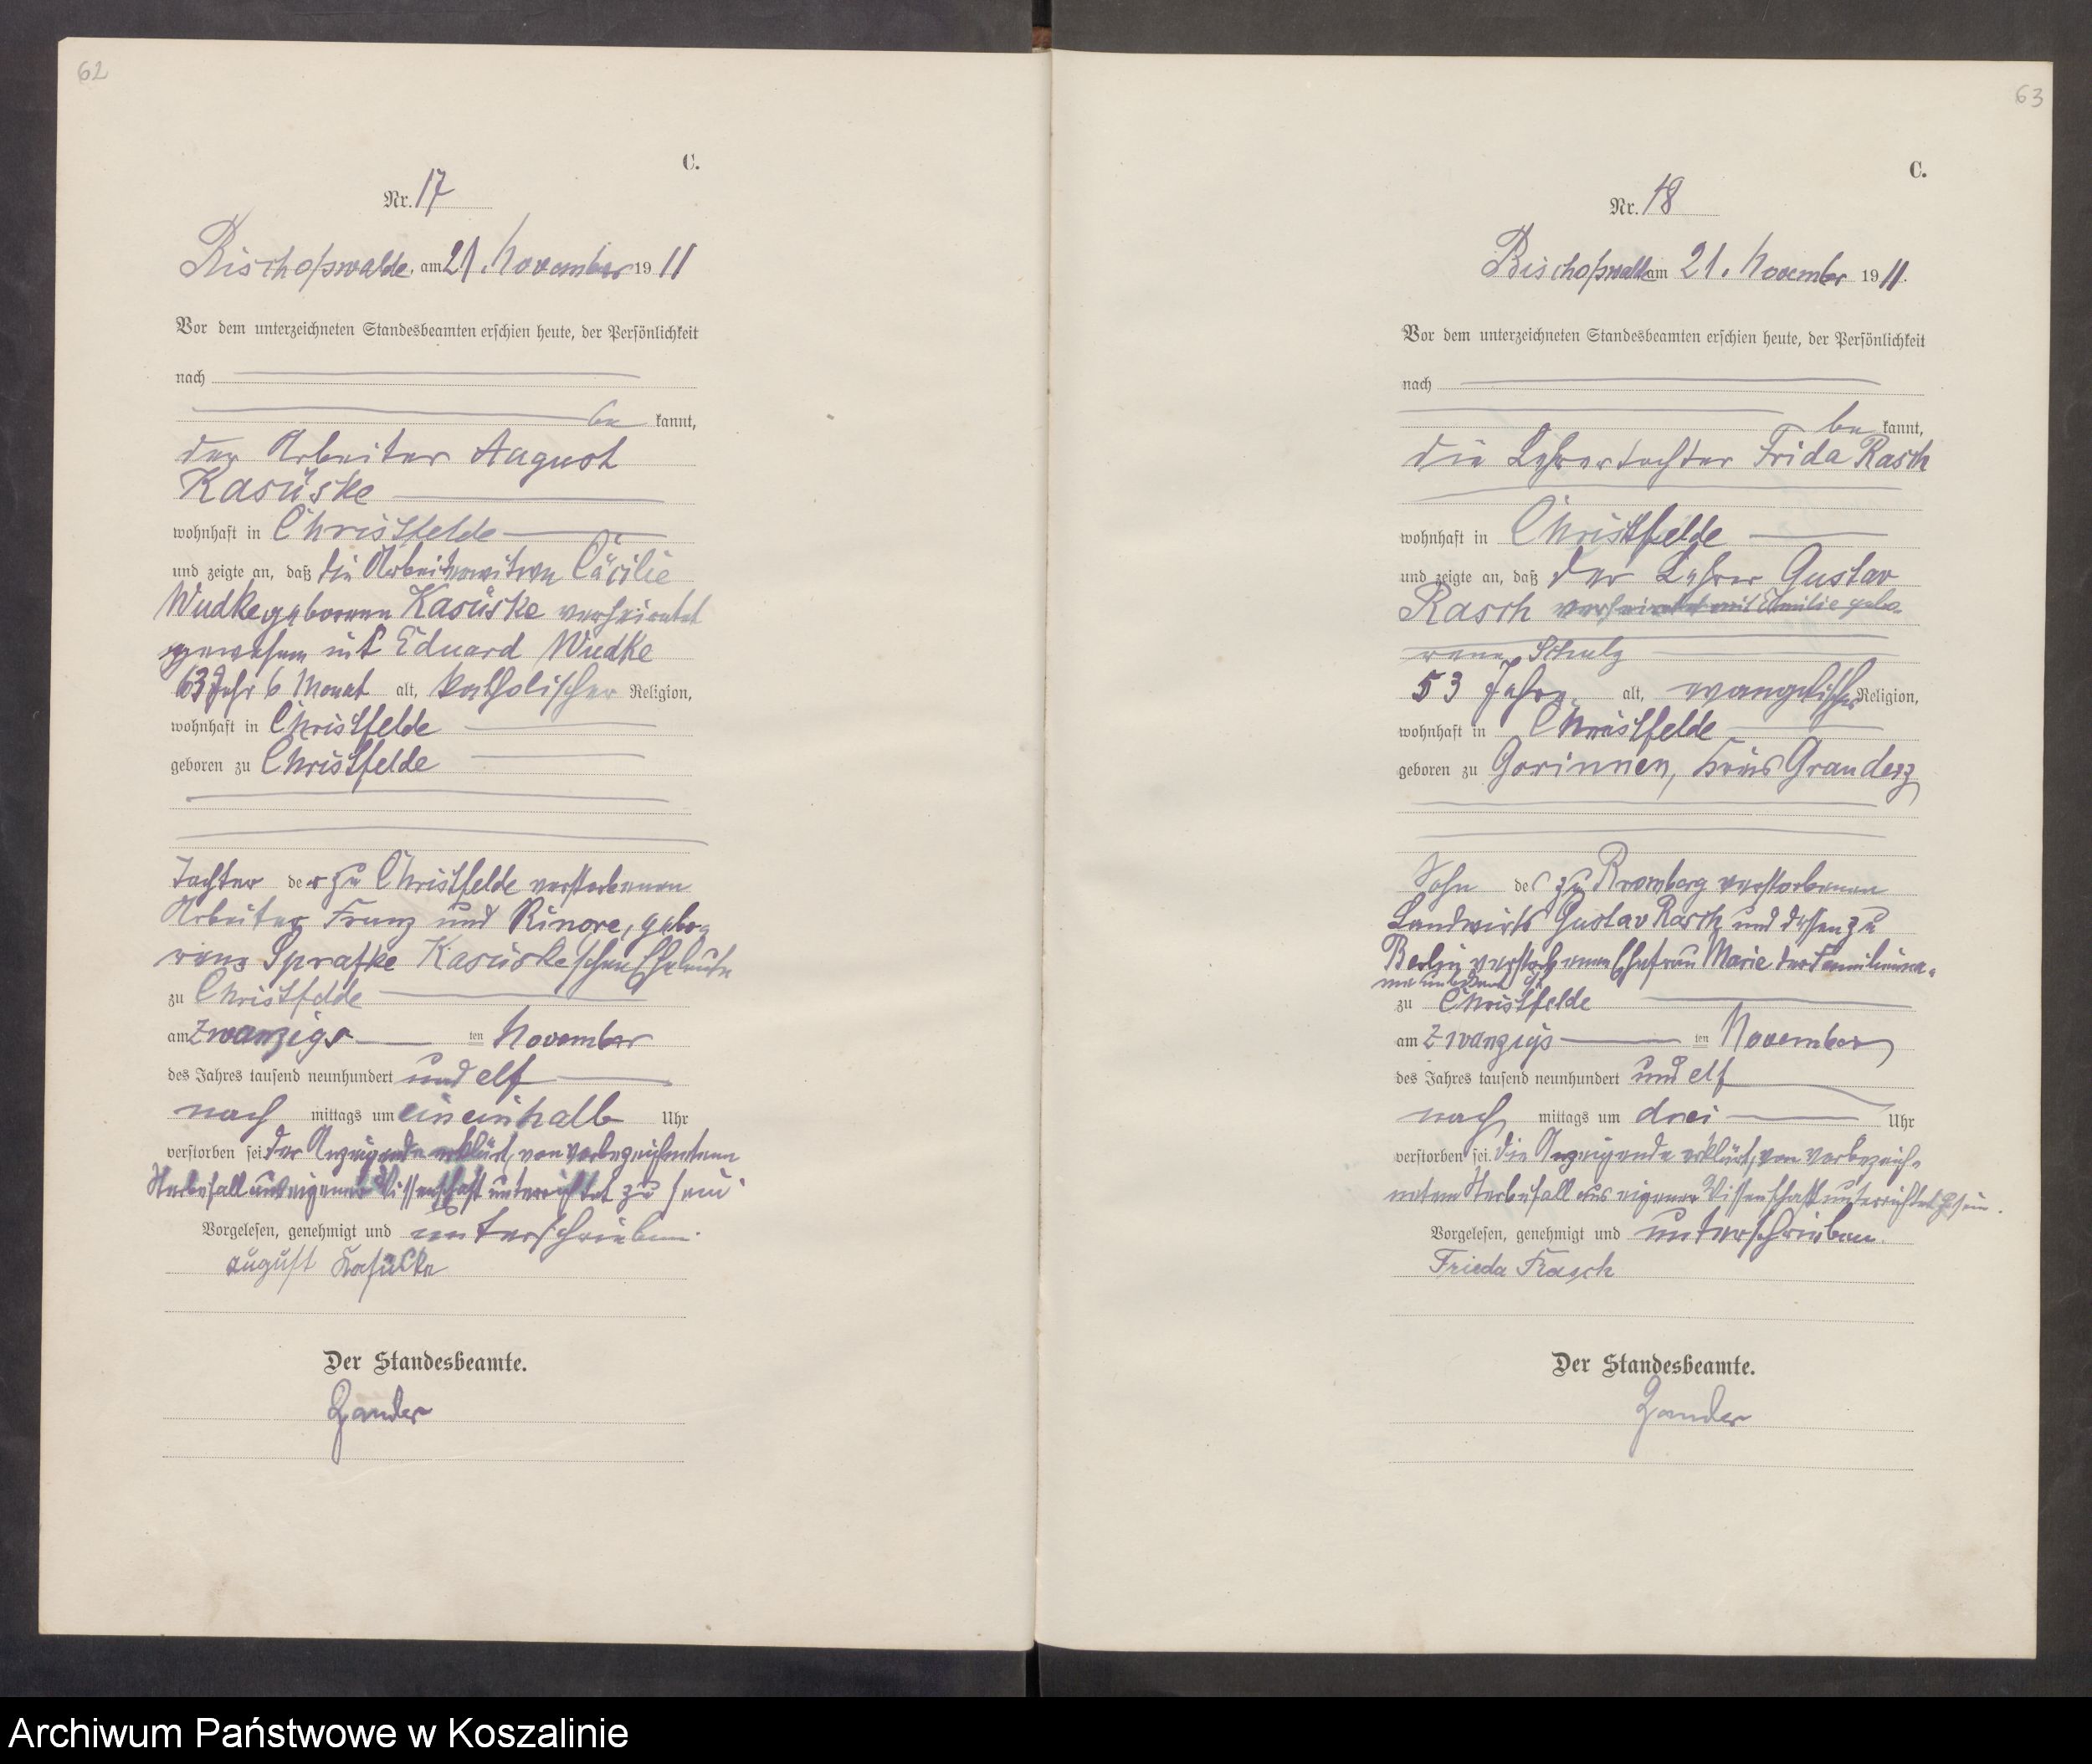 62
C.
Nr. 17
Bischofswalde, am 21. November 1911
Vor dem unterzeichneten Standesbeamten erschien heute, der Persönlichkeit
nach
be kannt,
der Arbeiter August
Kasüske
wohnhaft in Christfelde
und zeigte an, daß die Arbeiterwitwe Cäcilie
Wudke geborene Kasüske verheiratet
gewesen mit Eduard Wudke
63 Jahr 6 Monat alt, katholischer Religion,
wohnhaft in Christfelde
geboren zu Christfelde
Tochter der zu Christfelde verstorbenen
Arbeiter Franz und Rinore, gebo-
rene Sprafke Kasüskeschen Eheleute
zu Christfelde
am Zwanzigs ten November
des Jahres tausend neunhundert und elf
nach mittags um ein einhalb Uhr
verstorben sei. Der Anzeigende erklärt, von vorbezeichnetem
Sterbefall aus eigener Wissenschaft unterrichtet zu sein
Vorgelesen, genehmigt und unterschrieben.
August Kasüske
Der Standesbeamte.
Zander
63
C.
Nr. 18
Bischofswalde am 21. November 1911.
Vor dem unterzeichneten Standesbeamten erschien heute, der Persönlichkeit
nach
be kannt,
die Lehrertochter Frida Rasch
wohnhaft in Christfelde
und zeigte an, daß der Lehrer Gustav
Rasch verheiratet mit Emilie gebo-
rene Schulz
53 Jahre alt, evangelischer Religion,
wohnhaft in Christfelde
geboren zu Gorinnen, Kreis Graudenz
Sohn des zu Bromberg verstorbenen
Landwirts Gustav Rasch und dessen zu
Berlin verstorbenen Ehefrau Marie der Familienna-
me unbekannt ist
zu Christfelde
am Zwanzigs ten November
des Jahres tausend neunhundert und elf
nach mittags um drei Uhr
verstorben sei. Die Anzeigende erklärt, von vorbezeich-
netem Sterbefall aus eigener Wissenschaft unterrichtet zu sein.
Vorgelesen, genehmigt und unterschrieben.
Frieda Rasch
Der Standesbeamte.
Zander
Archiwum Państwowe w Koszalinie